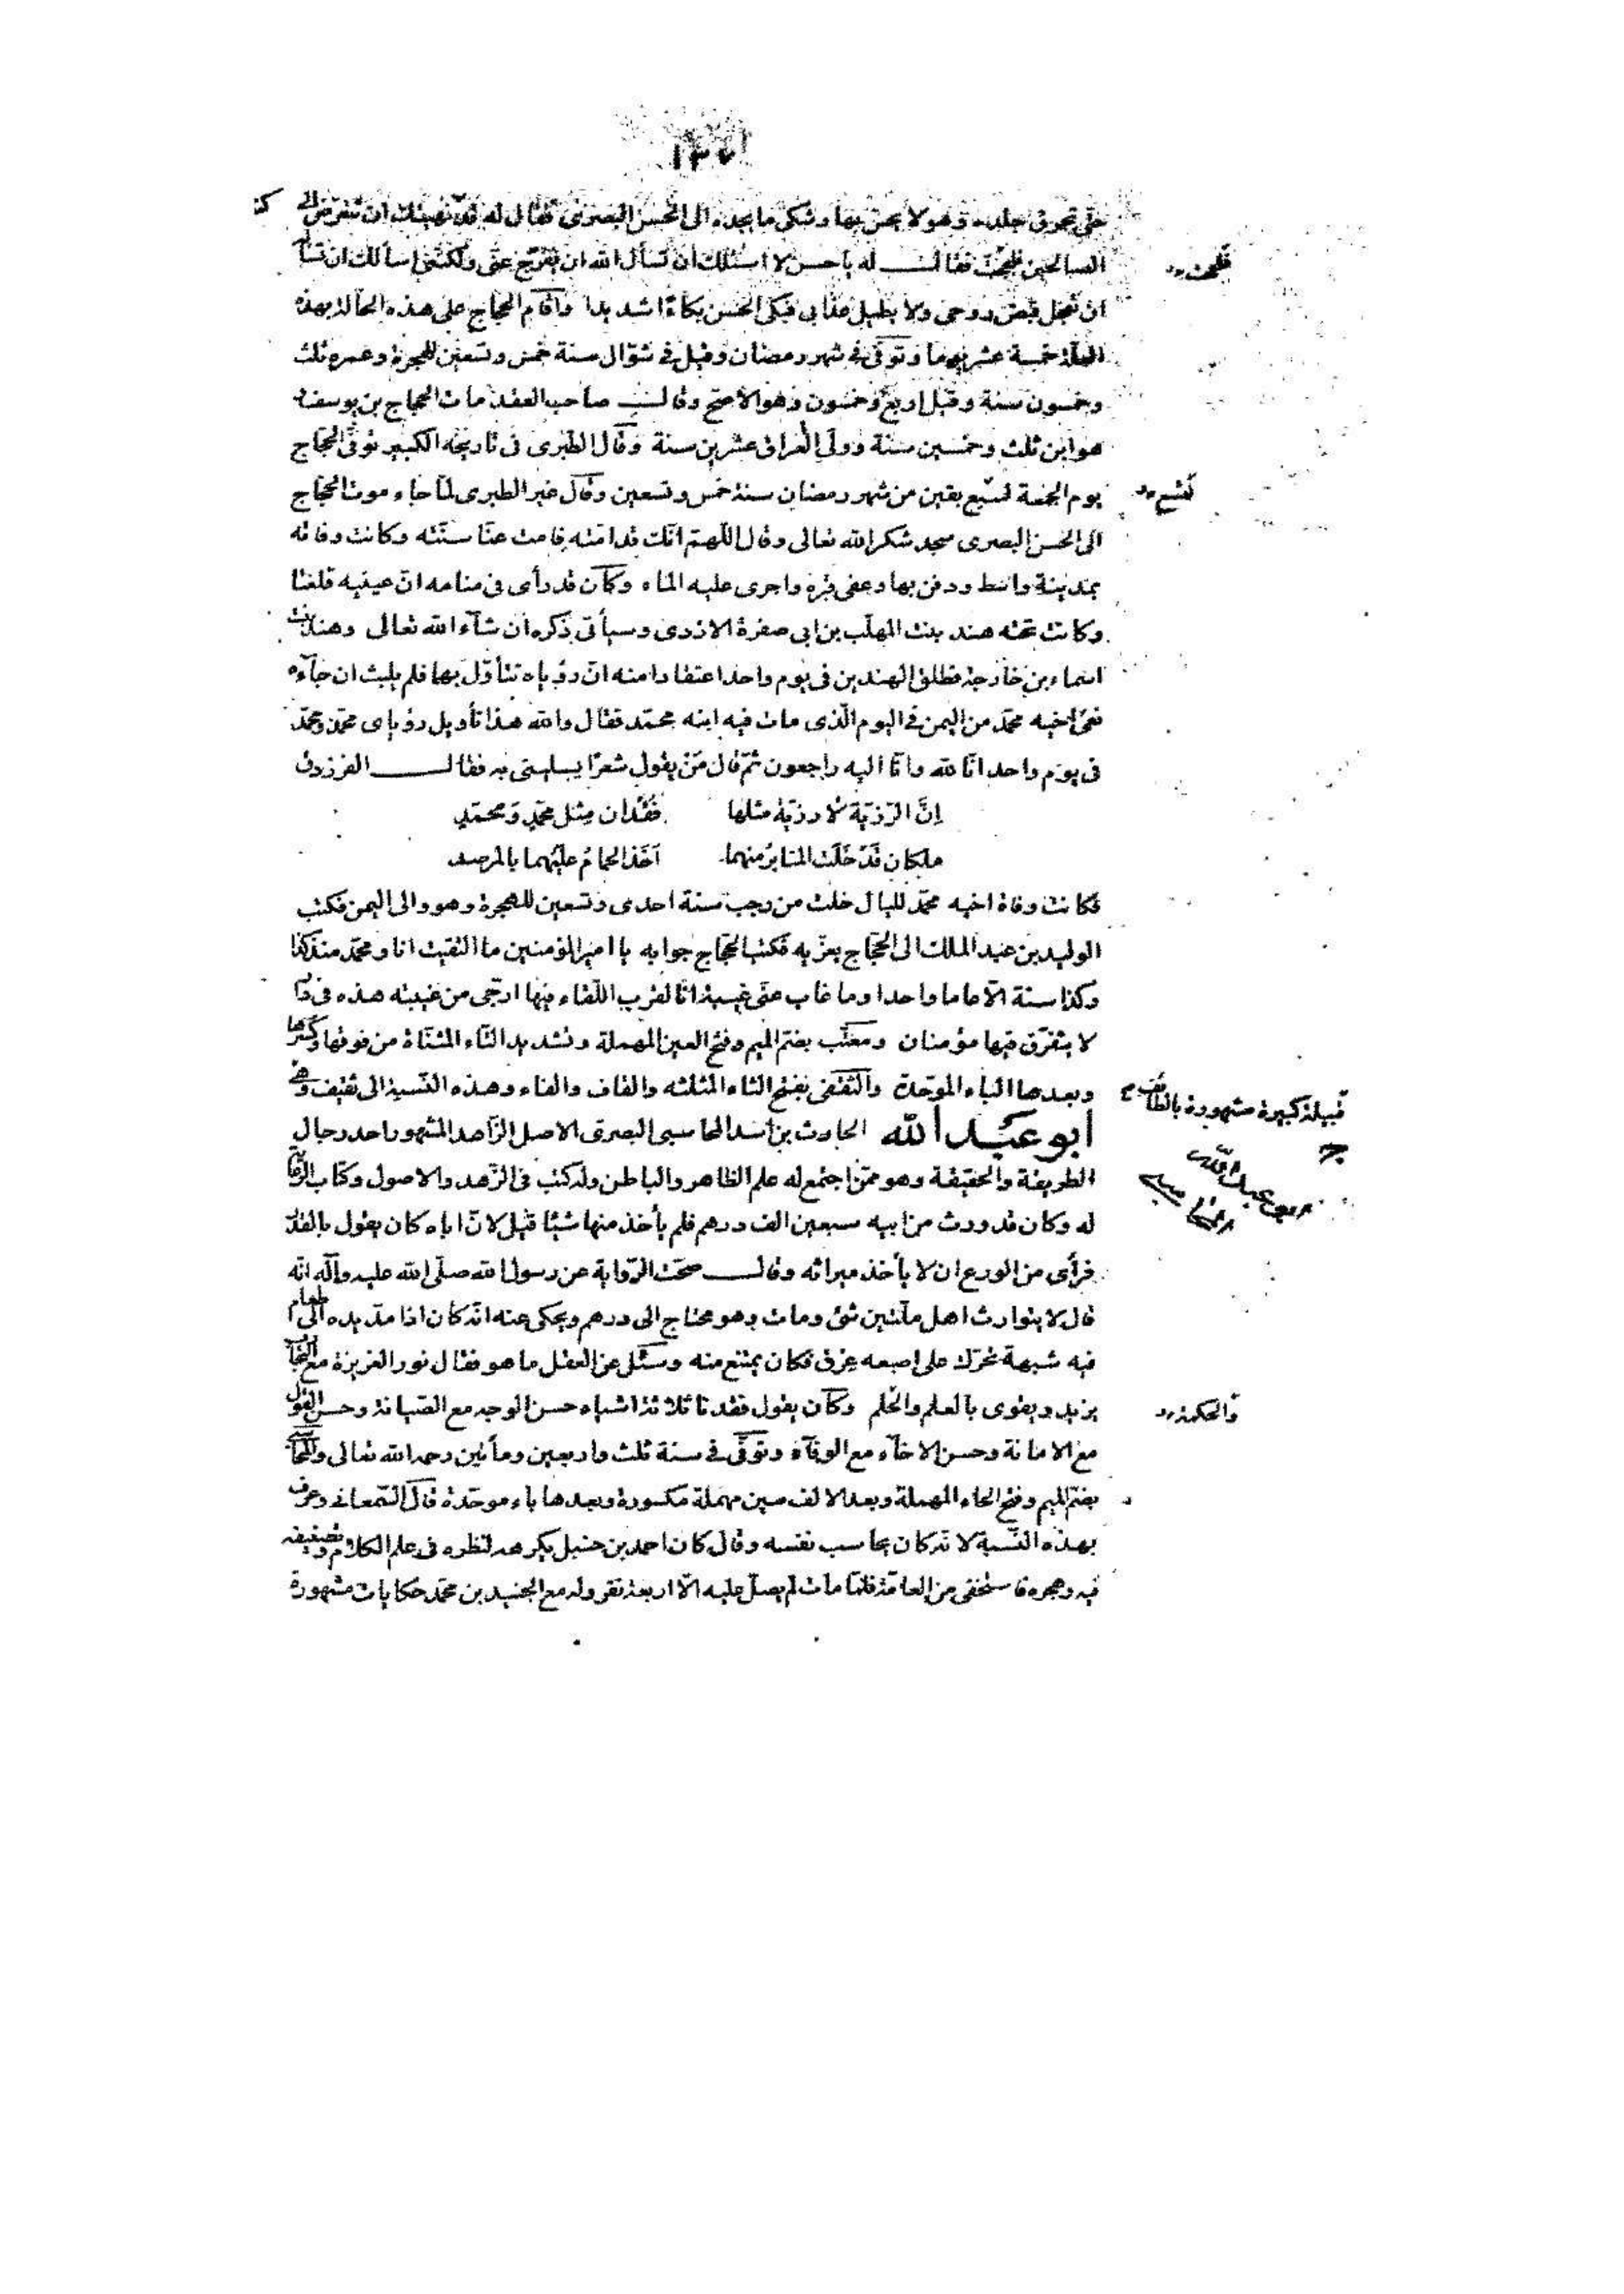 ١٣٧
حتى تحرق جلده وهو لا يحس بها وشكى ما يجده الى الحسن البصرى فقال له قد نهيتك ان تتعرّض الى
الصالحين فلججت فقال له يا حسن لا اسئلك ان تسأل الله ان يفرّج عنّى ولكنّنى اسألك ان تسأله
ان تعجل قبض روحى ولا يطيل عذابى فبكى الحسن بكاءً شديدا واقام الحجاج على هذه الحالة بهذه
العلّة خمسة عشر يوما وتوفّى فى شهر رمضان وقيل فى شوّال سنة خمس وتسعين للهجرة وعمره ثلث
وخمسون سنة وقيل اربع وخمسون وهو الاصح وقال صاحب العقد مات الحجاج بن يوسف
هو ابن ثلث وخمسين سنة وولى العراق عشرين سنة وقال الطبرى فى تاريخه الكبير توفّى الحجّاج
يوم الجمعة لسبع بقين من شهر رمضان سنة خمس وتسعين وقال غير الطبرى لمّا جاء موت الحجّاج
الى الحسن البصرى سجد شكرا لله تعالى وقال اللّهمّ انّك قد امتّه فامت عنّا سنّته وكانت وفاته
بمدينة واسط ودفن بها وعفى قبره واجرى عليه الماء وكان قد رأى فى منامه انّ عينيه قلعتا
وكانت تحته هند بنت المهلّب بن ابى صفرة الازدى وسيأتى ذكره ان شآء الله تعالى وهند بنت
اسماء بن خارجة فطلق الهندين فى يوم واحد اعتقادا منه انّ رؤياه تتأوّل بها فلم يلبث ان جآءه
نعى اخيه محمّد من اليمن فى اليوم الّذى مات فيه ابنه محمّد فقال والله هذا تأويل رؤياى محمّد ومحمّد
فى يوم واحد انّا لله وانّا اليه راجعون ثمّ قال مَنْ يقول شعرًا يسلينى به فقال الفرزدق
اِنَّ الرّزيّة لا رزيّة مثلها فُقْدان مِثل محمّدٍ وَمحمّدٍ
ملكان قَدْ خَلَت المنابرُ منهما اَخَذ الحمامُ عليهما بالمرصد
فكانت وفاة اخيه محمّد لليال خلت من رجب سنة احدى وتسعين للهجرة وهو والى اليمن فكتب
الوليد بن عبد الملك الى الحجّاج يعزّيه فكتب الحجّاج جوابه يا امير المؤمنين ما التقيت انا ومحمّد منذ كذا
وكذا سنة الّا عاما واحدا وما غاب عنّى غيبة انا لقرب اللّقاء فيها ارجى من غيبته هذه فى دار
لا يتفرّق فيها مؤمنان ومعتّب بضمّ الميم وفتح العين المهملة وتشديد التاء المثنّاة من فوقها وكسرها
وبعدها الباء الموحّدة والثقفى بفتح الثاء المثلثه والقاف والفاء وهذه النّسبة الى ثقيف وهى
ابو عَبْد الله الحارث بن اسد المحاسبى البصرى الاصل الزّاهد المشهور احد رجال
الطريقة والحقيقة وهو ممّن اجتمع له علم الظاهر والباطن وله كتب فى الزّهد والاصول وكتاب الرّعاية
له وكان قد ورث من ابيه سبعين الف درهم فلم يأخذ منها شيئا قيل لانّ اباه كان يقول بالقدر
فرأى من الورع ان لا يأخذ ميراثه وقال صحّت الرّواية عن رسول الله صلّى الله عليه وآله انّه
قال لا يتوارث اهل ملّتين شئ ومات وهو محتاج الى درهم ويحكى عنه انّه كان اذا مدّ يده الى طعام
فيه شبهة تحرّك على اصبعه عِرْق فكان يمتنع منه وسئل عن العقل ما هو فقال نور الغريزة مع التجارب
يزيد ويقوى بالعلم والحلم وكان يقول فقدنا ثلاثة اشياء حسن الوجه مع الصّيانة وحسن القول
مع الامانة وحسن الاخآء مع الوفآء وتوفّى فى سنة ثلث واربعين ومأتين رحمه الله تعالى والمحاسبى
بضمّ الميم وفتح الحاء المهملة وبعد الالف سين مهملة مكسورة وبعدها باء موحّدة قال السّمعانى وعرف
بهذه النّسبة لانّه كان يحاسب نفسه وقال كان احمد بن حنبل يكرهه لنظره فى علم الكلام وتصنيفه
فيه وهجره فاستخفى من العامّة فلمّا مات لم يصلّ عليه الّا اربعة نفر وله مع الجنيد بن محمّد حكايات مشهورة
فلججت
تسع
قبيلة كبيرة مشهورة بالطائف
ابو عبد الله المحاسبى
والحكمة